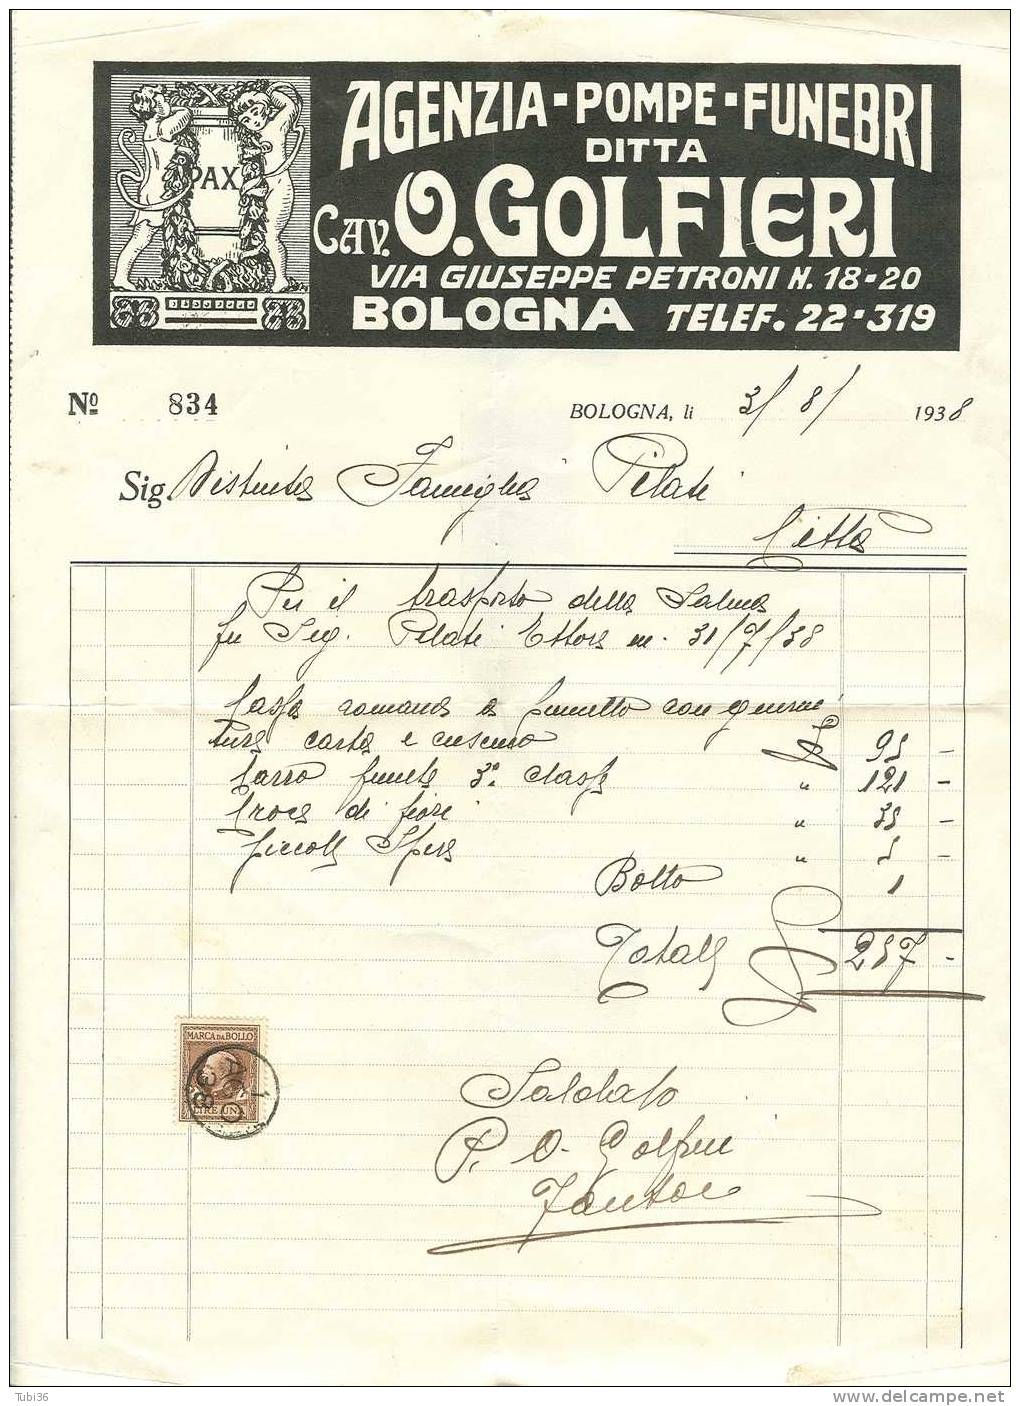 AGENZIA-POMPE-FUNEBRI
DITTA
CAV. O. GOLFIERI
VIA GIUSEPPE PETRONI N. 18-20
BOLOGNA TELEF. 22-319
PAX
Nº 834
BOLOGNA, li 3/8/ 1938
Sig. Distinta Famiglia Pilati
Città
Per il trasporto della Salma
fu Sig. Pilati Ettore m. 31/7/38
Cassa romana a fumetto con guarni
tura carta e cuscino £ 95 -
Carro funebre 3ª classe " 121 -
Croce di fiori " 35 -
piccole Spese " 5 -
Bollo 1
Totale £ 257 -
MARCA DA BOLLO
LIRE UNA
1 AGO 38
Saldato
P. O. Golfieri
Tubi36
www.delcampe.net